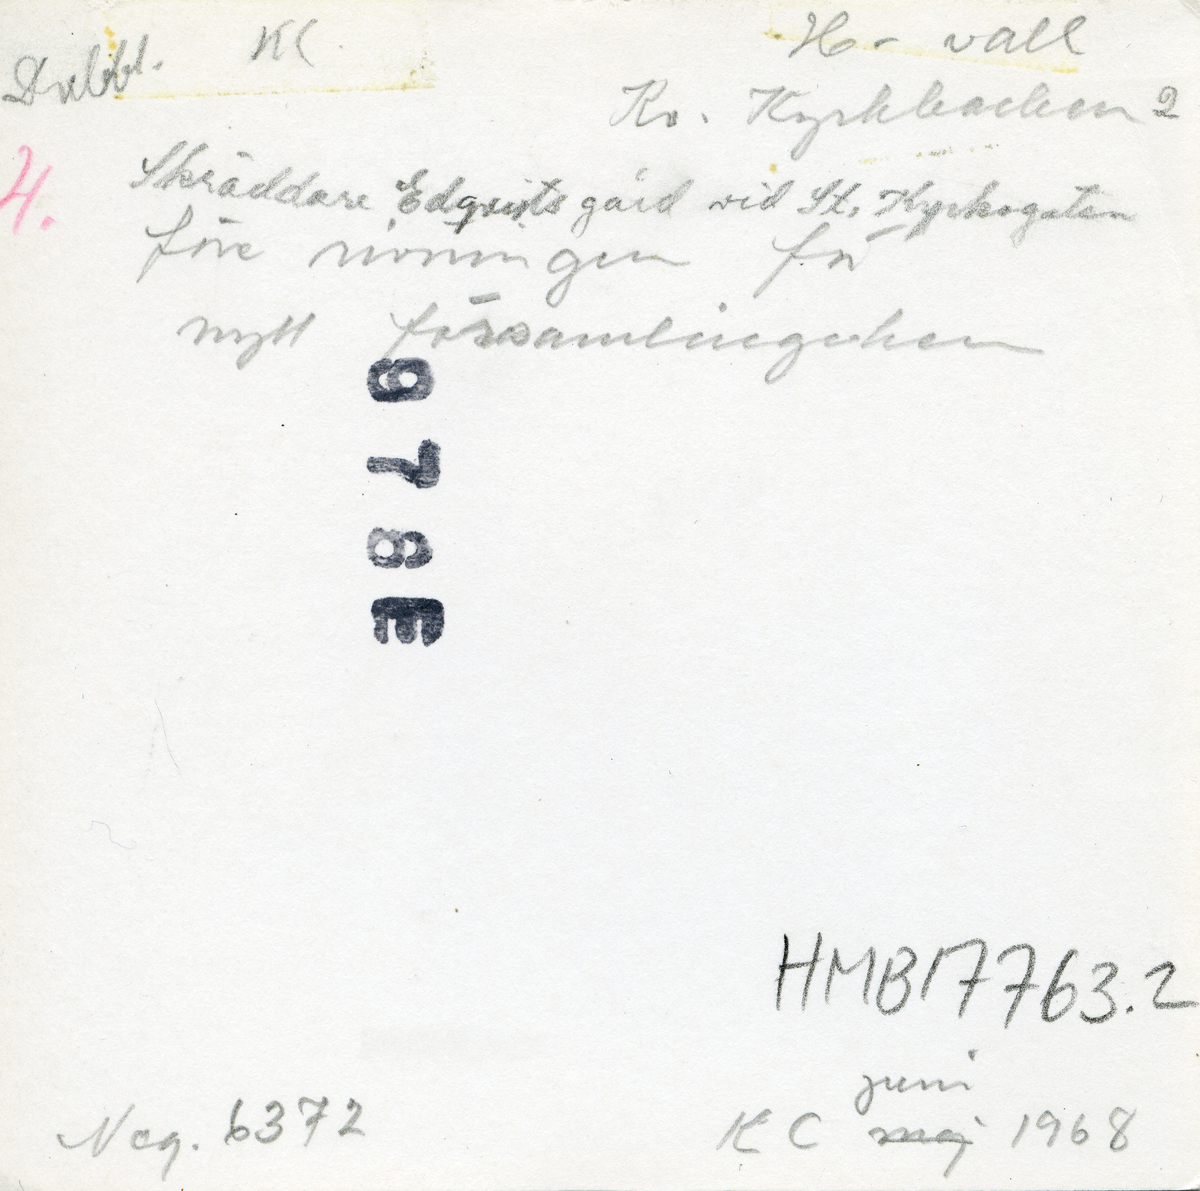 Dubbl. KC
H-vall
Kv. Kyrkbacken 2
4.
Skräddare Edqvists gård vid St. Kyrkogatan
före rivningen för
nytt församlingshem
978E
HMB17763.2
juni
Neg. 6372
KC maj 1968